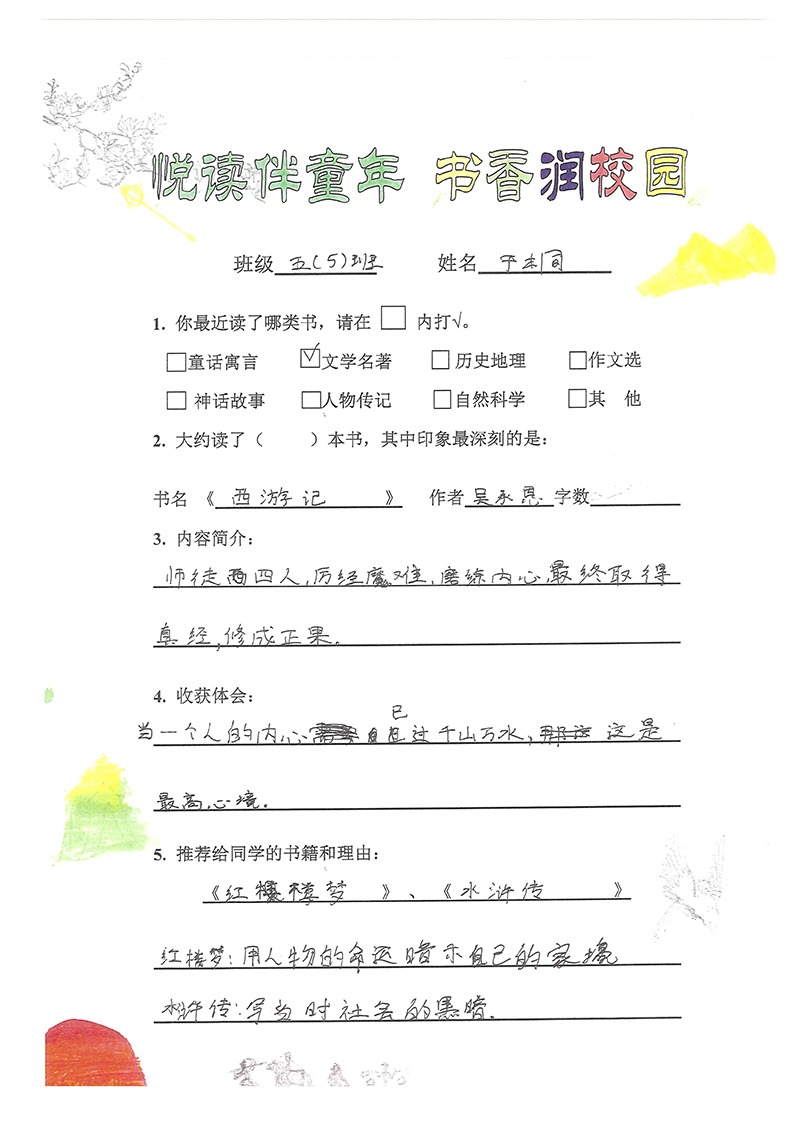 悦读伴童年 书香润校园
班级 五(5)班 姓名 于本同
1. 你最近读了哪类书，请在 □ 内打√。
□童话寓言 ☑文学名著 □历史地理 □作文选
□神话故事 □人物传记 □自然科学 □其 他
2. 大约读了（ ）本书，其中印象最深刻的是：
书名《西游记》 作者吴承恩 字数
3. 内容简介：
师徒四人,厉经魔难,磨练内心,最终取得
真经,修成正果.
4. 收获体会：
当一个人的内心自己过千山万水,这是
最高心境.
5. 推荐给同学的书籍和理由：
《红楼梦》、《水浒传》
红楼梦:用人物的命运暗示自己的家境
水浒传:写当时社会的黑暗.